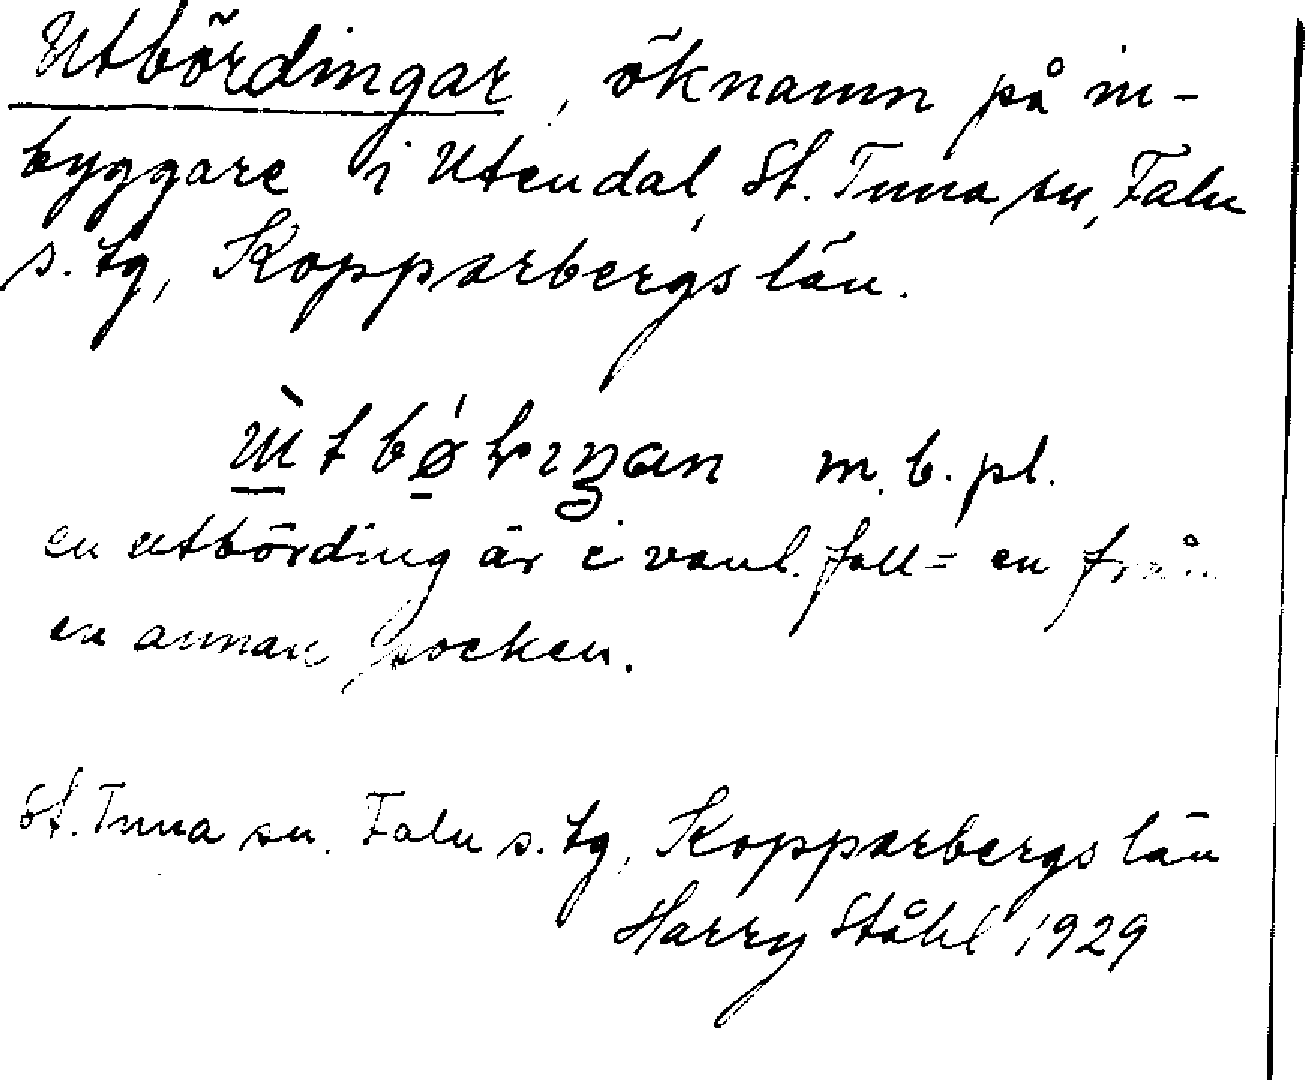 Utbördingar, öknamn på in-
byggare i Utendal, St. Tuna sn, Falu
s. tg, Kopparbergs län.
m. b. pl.
en utbörding är i vanl. fall = en från
en annan socken.
St. Tuna sn. Falu s. tg, Kopparbergs län
Harry Ståhl 1929